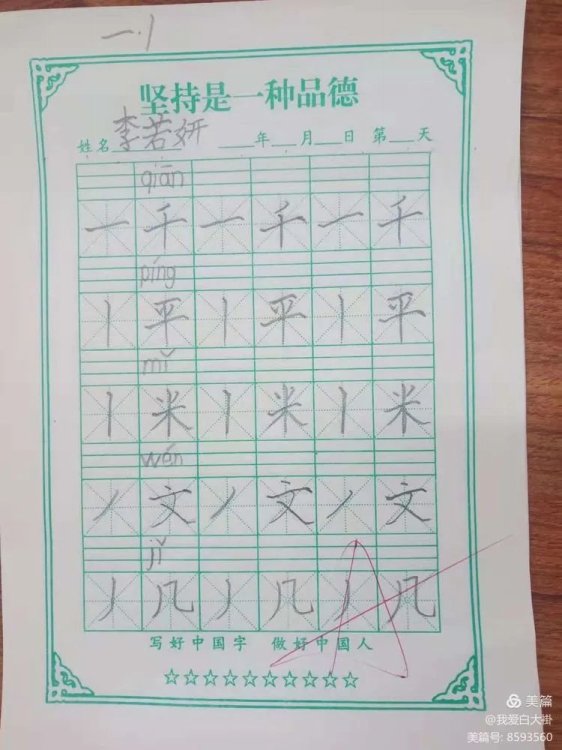 一.1
坚持是一种品德
姓名 李若妍 ___年___月___日 第___天
qiān
一 千 一 千 一 千
píng
丨 平 丨 平 丨 平
mǐ
丨 米 丨 米 丨 米
wén
丿 文 丿 文 丿 文
jǐ
丿 几 丿 几 丿 几
写好中国字 做好中国人
☆☆☆☆☆☆☆☆☆☆
美篇
@我爱白大褂
美篇号: 8593560